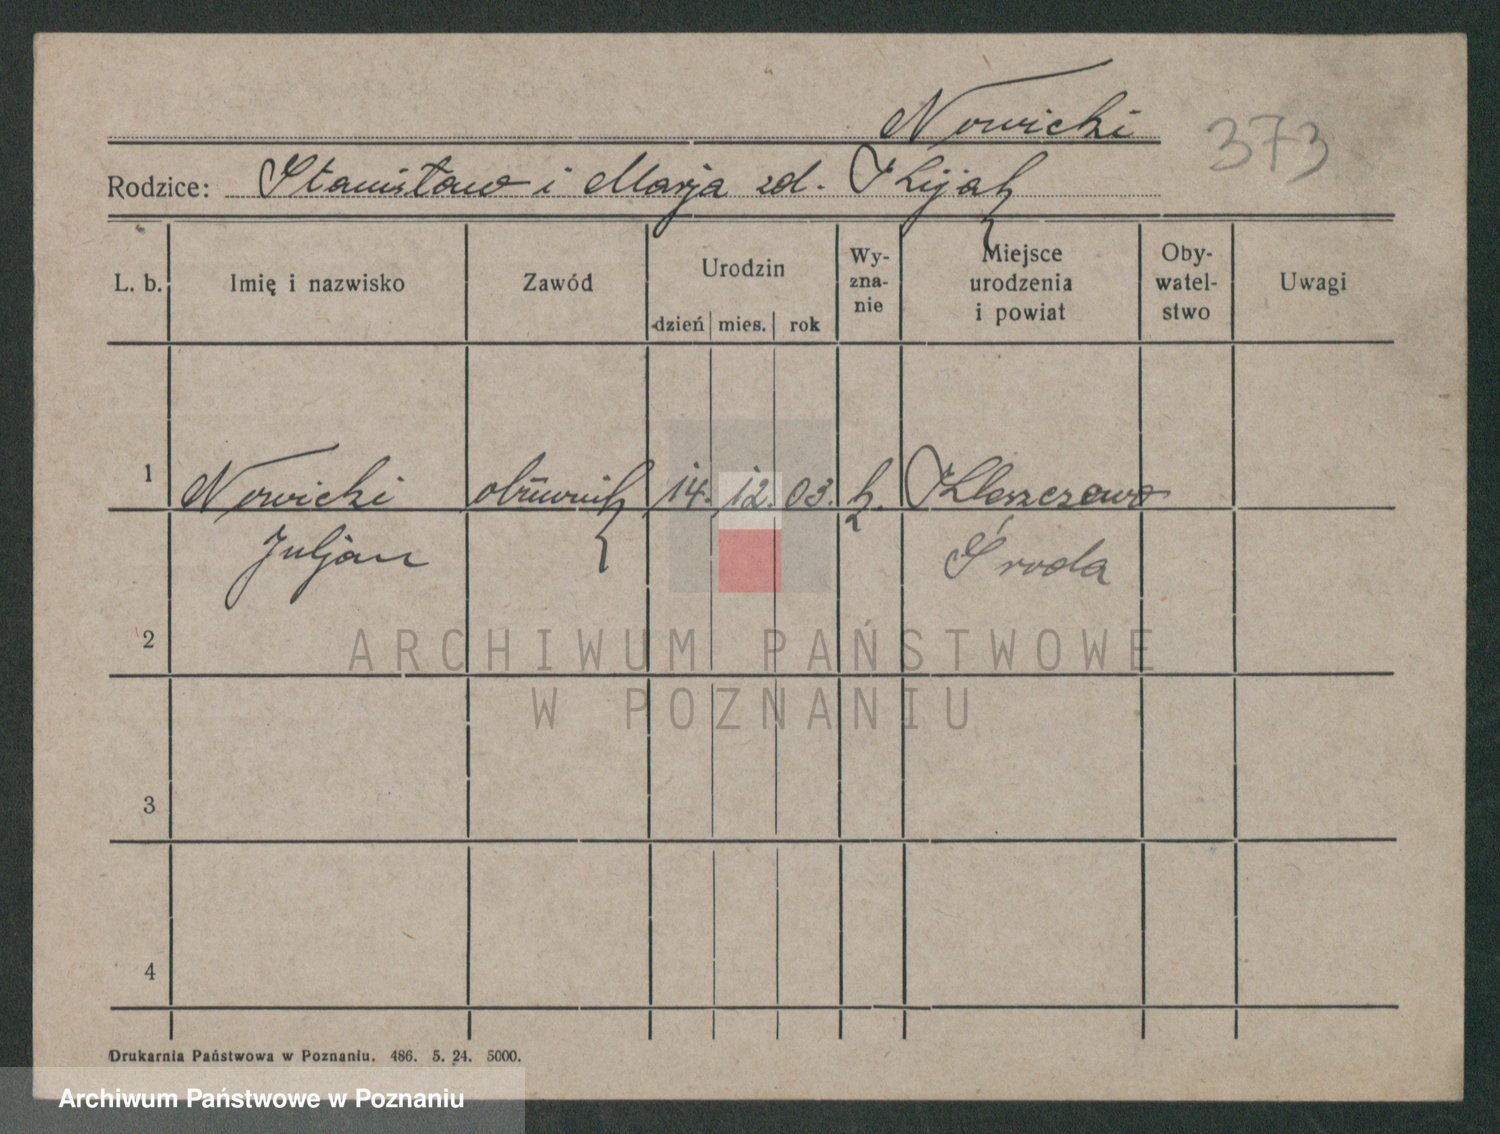 Nowicki
373
Rodzice: Stanisław i Marja zd. Kijak
L. b. Imię i nazwisko Zawód Urodzin dzień mies. rok Wy-zna-nie Miejsce urodzenia i powiat Oby-watel-stwo Uwagi
1 Nowicki obuwnik 14. 12. 03. k. Kleszczewo
Juljan Środa
2
ARCHIWUM PAŃSTWOWE
W POZNANIU
3
4
Drukarnia Państwowa w Poznaniu. 486. 5. 24. 5000.
Archiwum Państwowe w Poznaniu